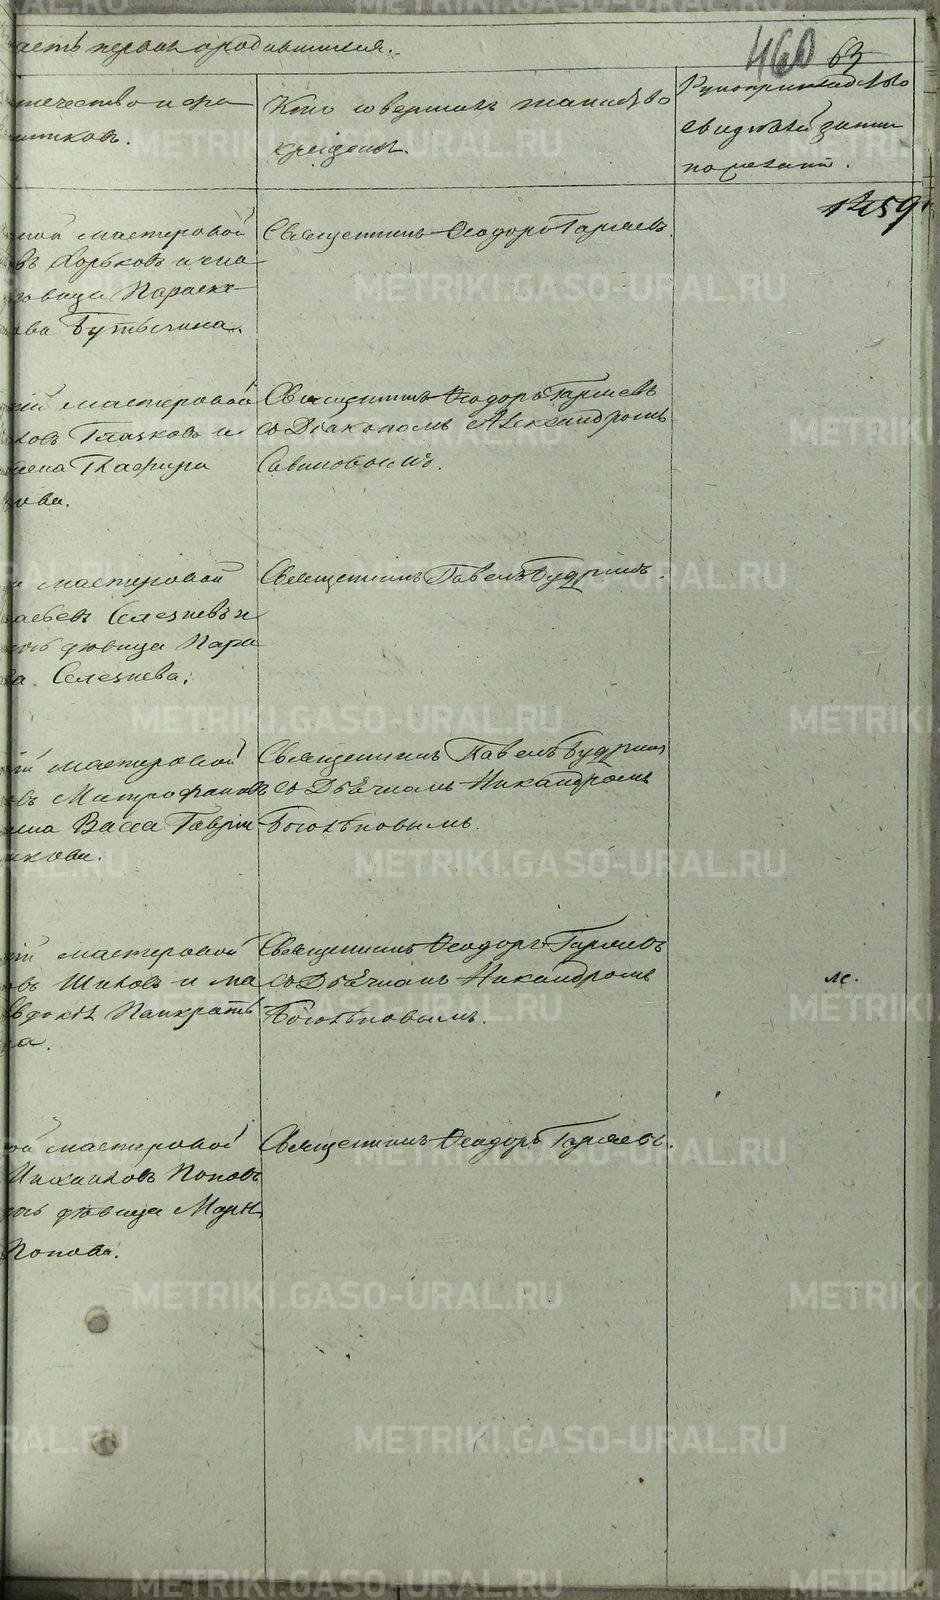 асть первая о родившихся.
460 63
течество и фа
никовъ.
Кто совершалъ таинство
крещенія.
Рукоприкладство
свидѣтелей записи
по желанію.
1459
ной мастеровой
въ Хорьковъ и
вица Параске
ова Бутысина.
Священникъ Ѳеодоръ Гаряевъ.
кій мастеровой
ковъ Глазковъ и
жена Глафира
нова.
Священникъ Ѳеодоръ Гаряевъ
съ Діакономъ Александромъ
Савиновымъ.
й мастеровой
аевъ Селезневъ и
дѣвица Пара
ва Селезнева.
Священникъ Павелъ Будринъ.
кій мастеровой
овъ Митрофановъ
жена Васса Гаври
икова.
Священникъ Павелъ Будринъ
съ Дьячкомъ Никандромъ
Боголѣповымъ.
кій мастеровой
овъ Шиховъ и
Евдокія Панкрать
на.
Священникъ Ѳеодоръ Гаряевъ
съ Дьячкомъ Никандромъ
Боголѣповымъ.
ж.
ой мастеровой
Михаиловъ Поповъ
дѣвица Марія
Попова.
Священникъ Ѳеодоръ Гаряевъ.
METRIKI.GASO-URAL.RU